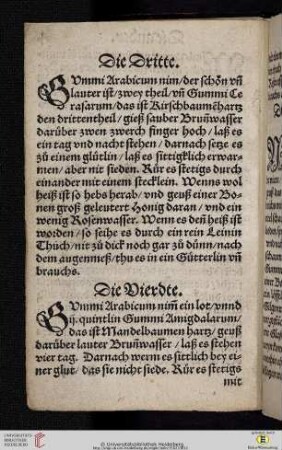 Die Dritte.
GUmmi Arabicum nim/der schön vñ
lauter ist/zwey theil/vñ Gummi Ce
rasarum/das ist Kirschbaumẽhartz
den drittentheil/gieß sauber Bruñwasser
darüber zwen zwerch finger hoch/laß es
ein tag vnd nacht stehen/darnach setze es
zů einem glütlin/laß es sittigklich erwar-
men/aber nit sieden. Rür es stetigs durch
einander mit einem stecklein. Wenns wol
heiß ist so hebs herab/vnd geuß einer Bo-
nen groß geleutert Honig daran/vnd ein
wenig Rosenwasser. Wenn es deñ heiß ist
worden/so seihe es durch ein rein Leinin
Thůch/nit zů dick noch gar zů dünn/nach
dem augenmeß/thu es in ein Gütterlin vñ
brauchs.
Die Vierdte.
GUmmi Arabicum nim̃ ein lot/vnnd
ij. quintlin Gummi Amigdalarum/
das ist Mandelbaumen hartz/geuß
darüber lauter Bruñwasser/laß es stehen
vier tag. Darnach werm es sittlich bey ei-
ner glut/das sie nicht siede. Rür es stetigs
mit
UNIVERSITÄTS-
BIBLIOTHEK
HEIDELBERG
© Universitätsbibliothek Heidelberg